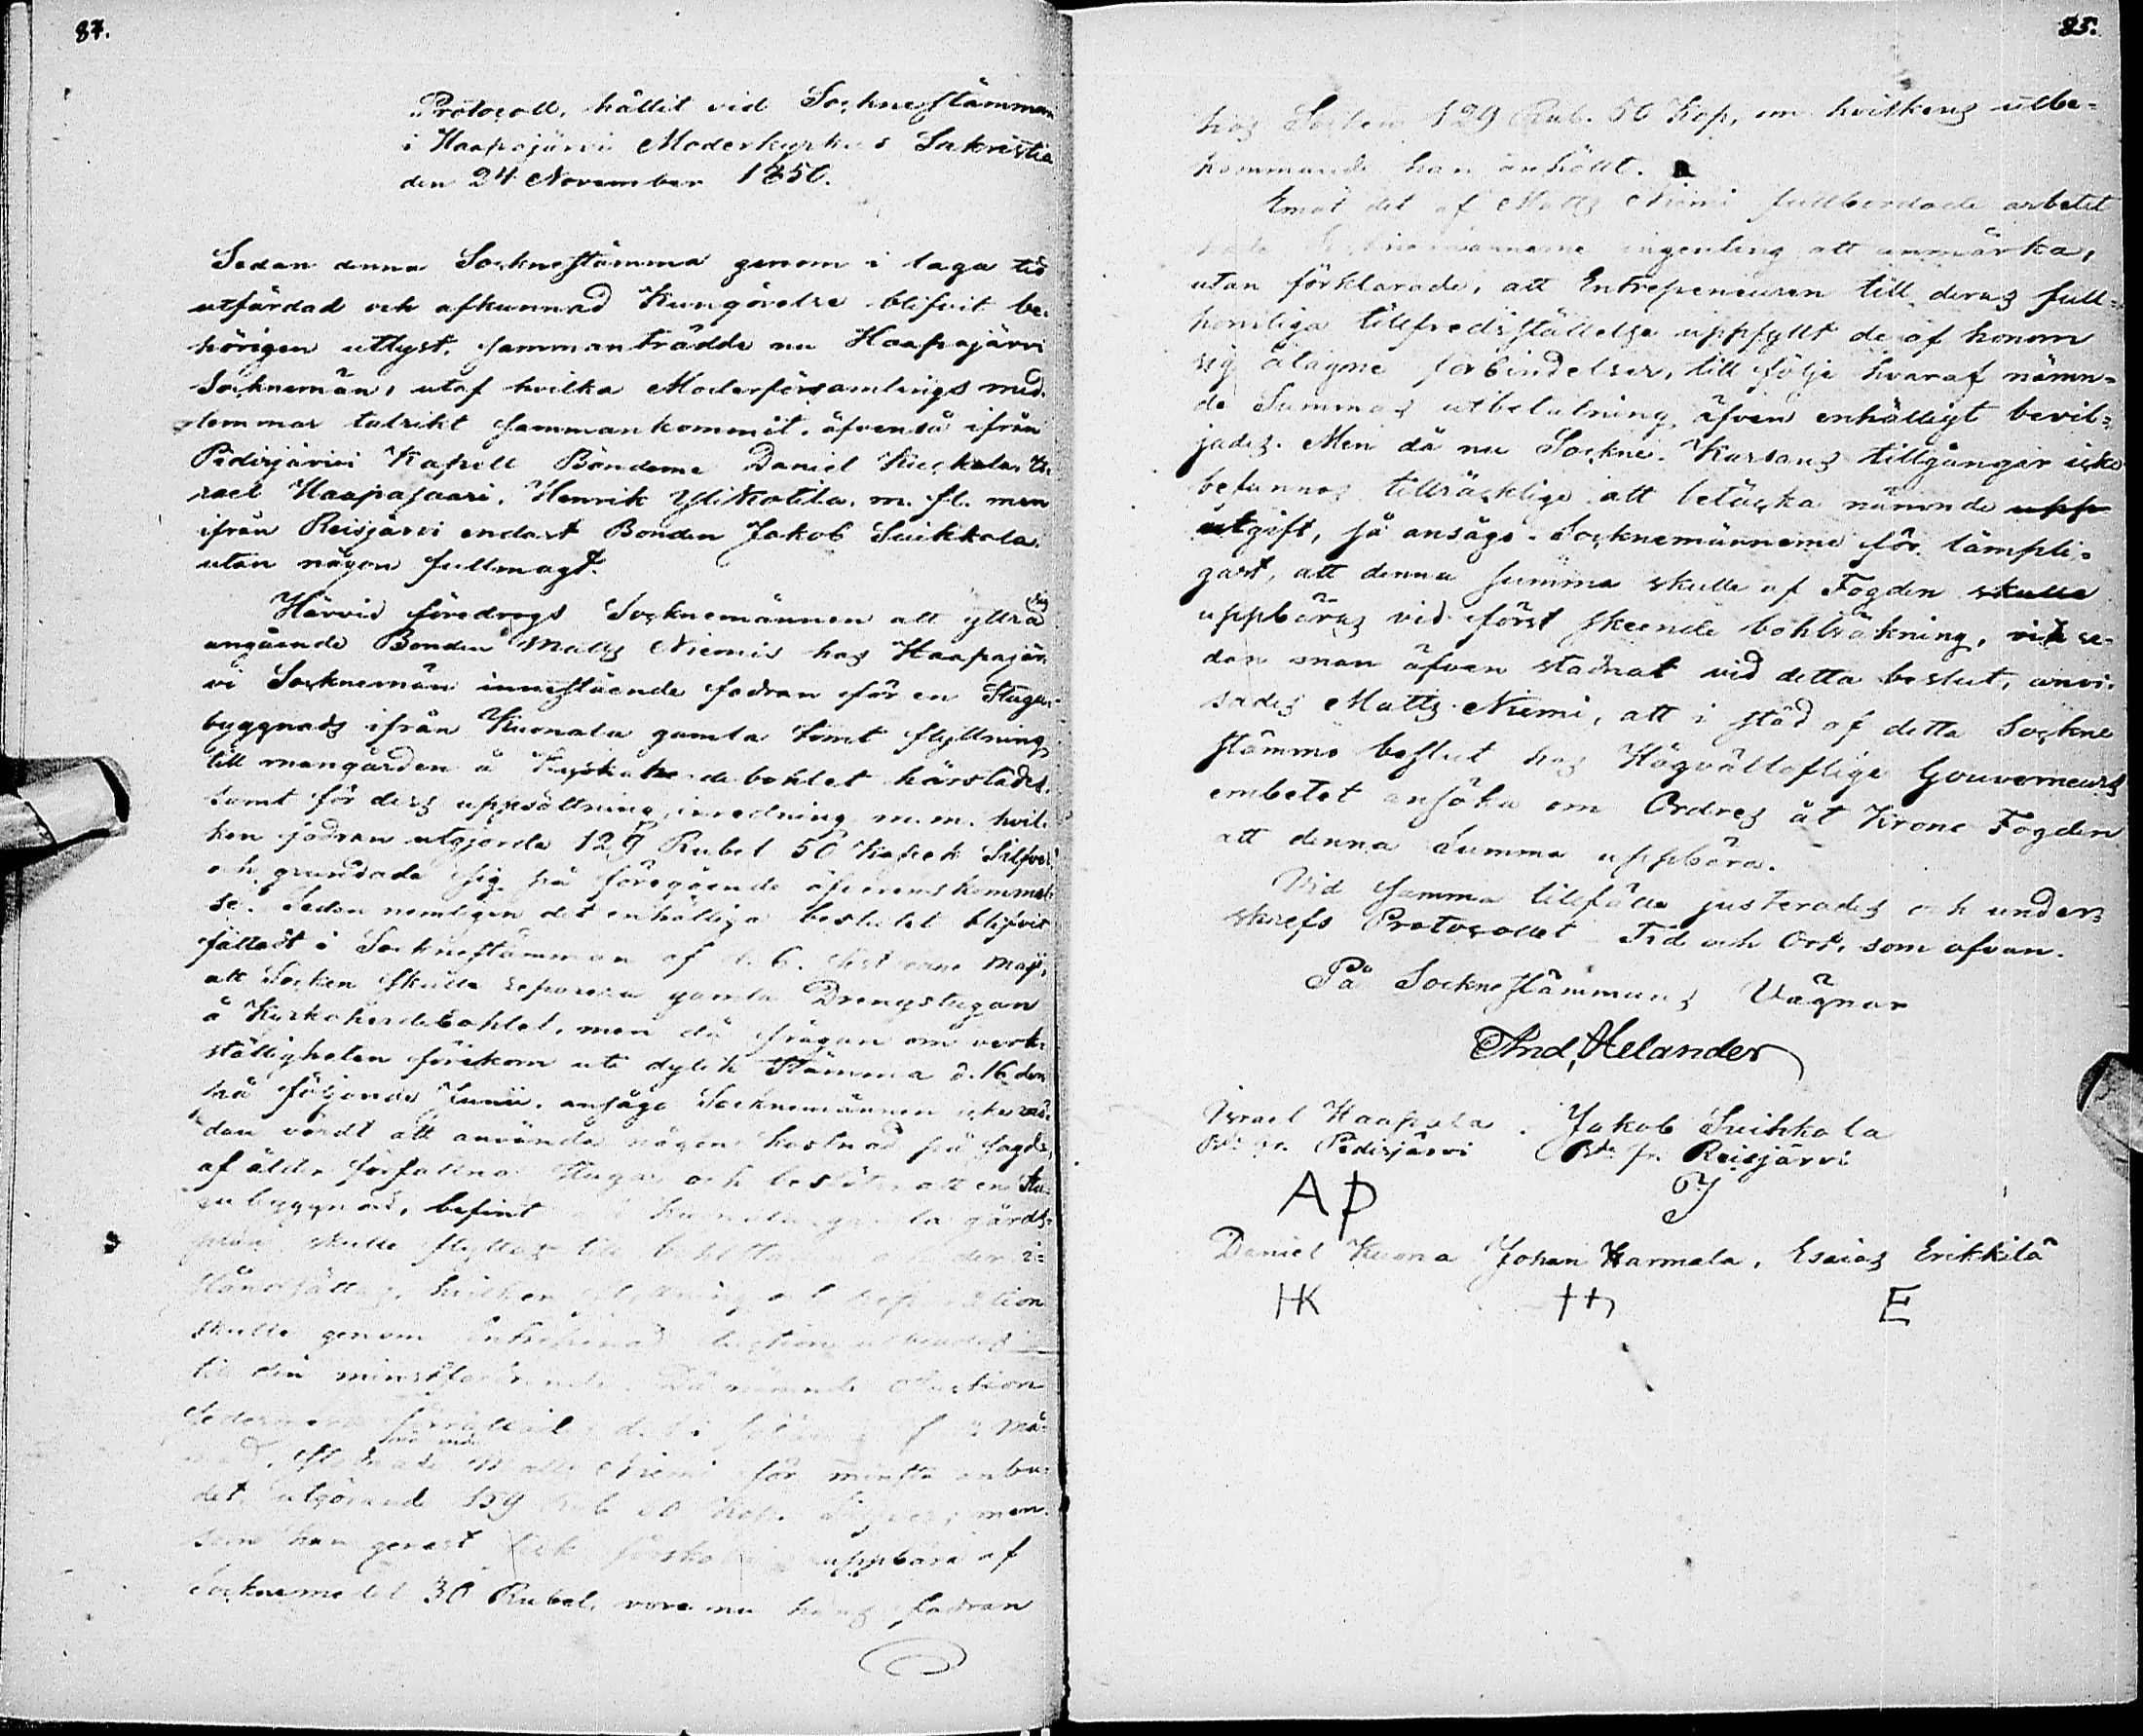 84.
Protocoll, hållit vid Socknestämman
i Haapajärvi Moderkyrkas Sakristia
den 24 November 1850.
Sedan denna Sockne stämma genom i laga tid
utfärdad och afkunnad Kungörelse blifvit be-
hörigen utlyst, sammanträdde nu Haapajärvi
Socknemän, utaf hvilka Moderförsamlings med-
lemmar talrikt sammankommit, äfvenså ifrån
Pidisjärvi Kapell Bönderne Daniel Kuckola, Is-
rael Haapasaari, Henrik Ylikotila, m. fl. men
ifrån Reisjärvi endast Bonden Jakob Suikkola,
utan någon fullmagt.
Härvid föredrogs Socknemännen att yttra sig
angående Bonden Matts Niemis hos Haapajär-
vi Socknemän innestående fodran för en Stugu-
byggnads ifrån Kuonala gamla tomt flyttning
till mangården å Kyrkoherdebohlet härstädes,
samt för dess uppsättning, inredning m.m. hvil-
ken fodran utgjorde 129 Rubel 50 Kopek Silfver
och grundade sig på föregående öfverenskommel-
se. Sedan nemligen det enhälliga beslutet blifvit
fattadt i Sockne stämman af d. 6. sistledne Maji,
att Socken skulle reparera gamla Drengstugan
å Kyrkoherdebohlet, men då frågan om verk-
ställigheten förekom uti dylik Stämma d. 16 der-
på följande Junii, ansågo Socknemännen icke mö-
dan värdt att använda någon kostnad på sagde,
af ålder förfallna Stuga och beslöto att en Stu-
gu byggnad, befint å Kuonala gamla gårds-
plan skulle flyttas till bohlet och der i-
ståndsättas, hvilken flyttning och reparation
skulle genom Entreprenad Auction utbjudas
till den minstfordrande. Då nämnde Auction
sedermera förrättades d. i må-
nad, stadnade Matts Niemi för minsta anbu-
det, utgörande 159 Rub 50 Kop. Silfver; men
som han genast fick förskotts uppbära af
Sockne medel 30 Rubel, vore nu hans fodran
85.
hos Socken 129 Rub. 50 Kop, om hvilkens utbe-
kommande han anhöllt.
Emot det af Matts Niemi fullbordade arbetet
hade Socknemännerne ingenting att anmärka,
utan förklarade, att Entrepreneuren till deras full-
komliga tillfredsställelse uppfyllt de af honom
sig åtagne förbindelser, till följe hvaraf nämn-
de Summas utbetalning äfven enhälligt bevil-
jades. Men då nu Sockne-Kassans tillgångar icke
befunnos tillräcklige att betäcka nämnde upp
utgift, så ansågo Socknemännerne för lämpli-
gast, att denna summa skulle af Fogden skulle
uppbäras vid först skeende bohlräkning, vid se-
dan man äfven stadnat vid detta beslut, anvi-
sades Matts Niemi, att i stöd af detta Sockne
stämmo beslut hos Högvällofliga Gouverneurs
embetet ansöka om Ordres åt Krono Fogden
att denna Summa uppbära.
Vid samma tillfälle justerades och under-
skrefs Protocollet Tid och Ort, som ofvan.
På Sockne stämmans Vägnar
And, Helander
Israel Haapala. Jakob Suikkola
Bde fr. Pidisjärvi Bde fr. Reisjärvi
AP J
Daniel Kuona Johan Karmala, Esaias Erikkilä
HK E